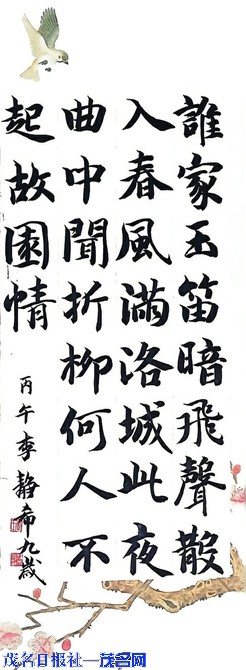 誰家玉笛暗飛聲散
入春風滿洛城此夜
曲中聞折柳何人不
起故園情
丙午李静希九歲
茂名日报社—茂名网